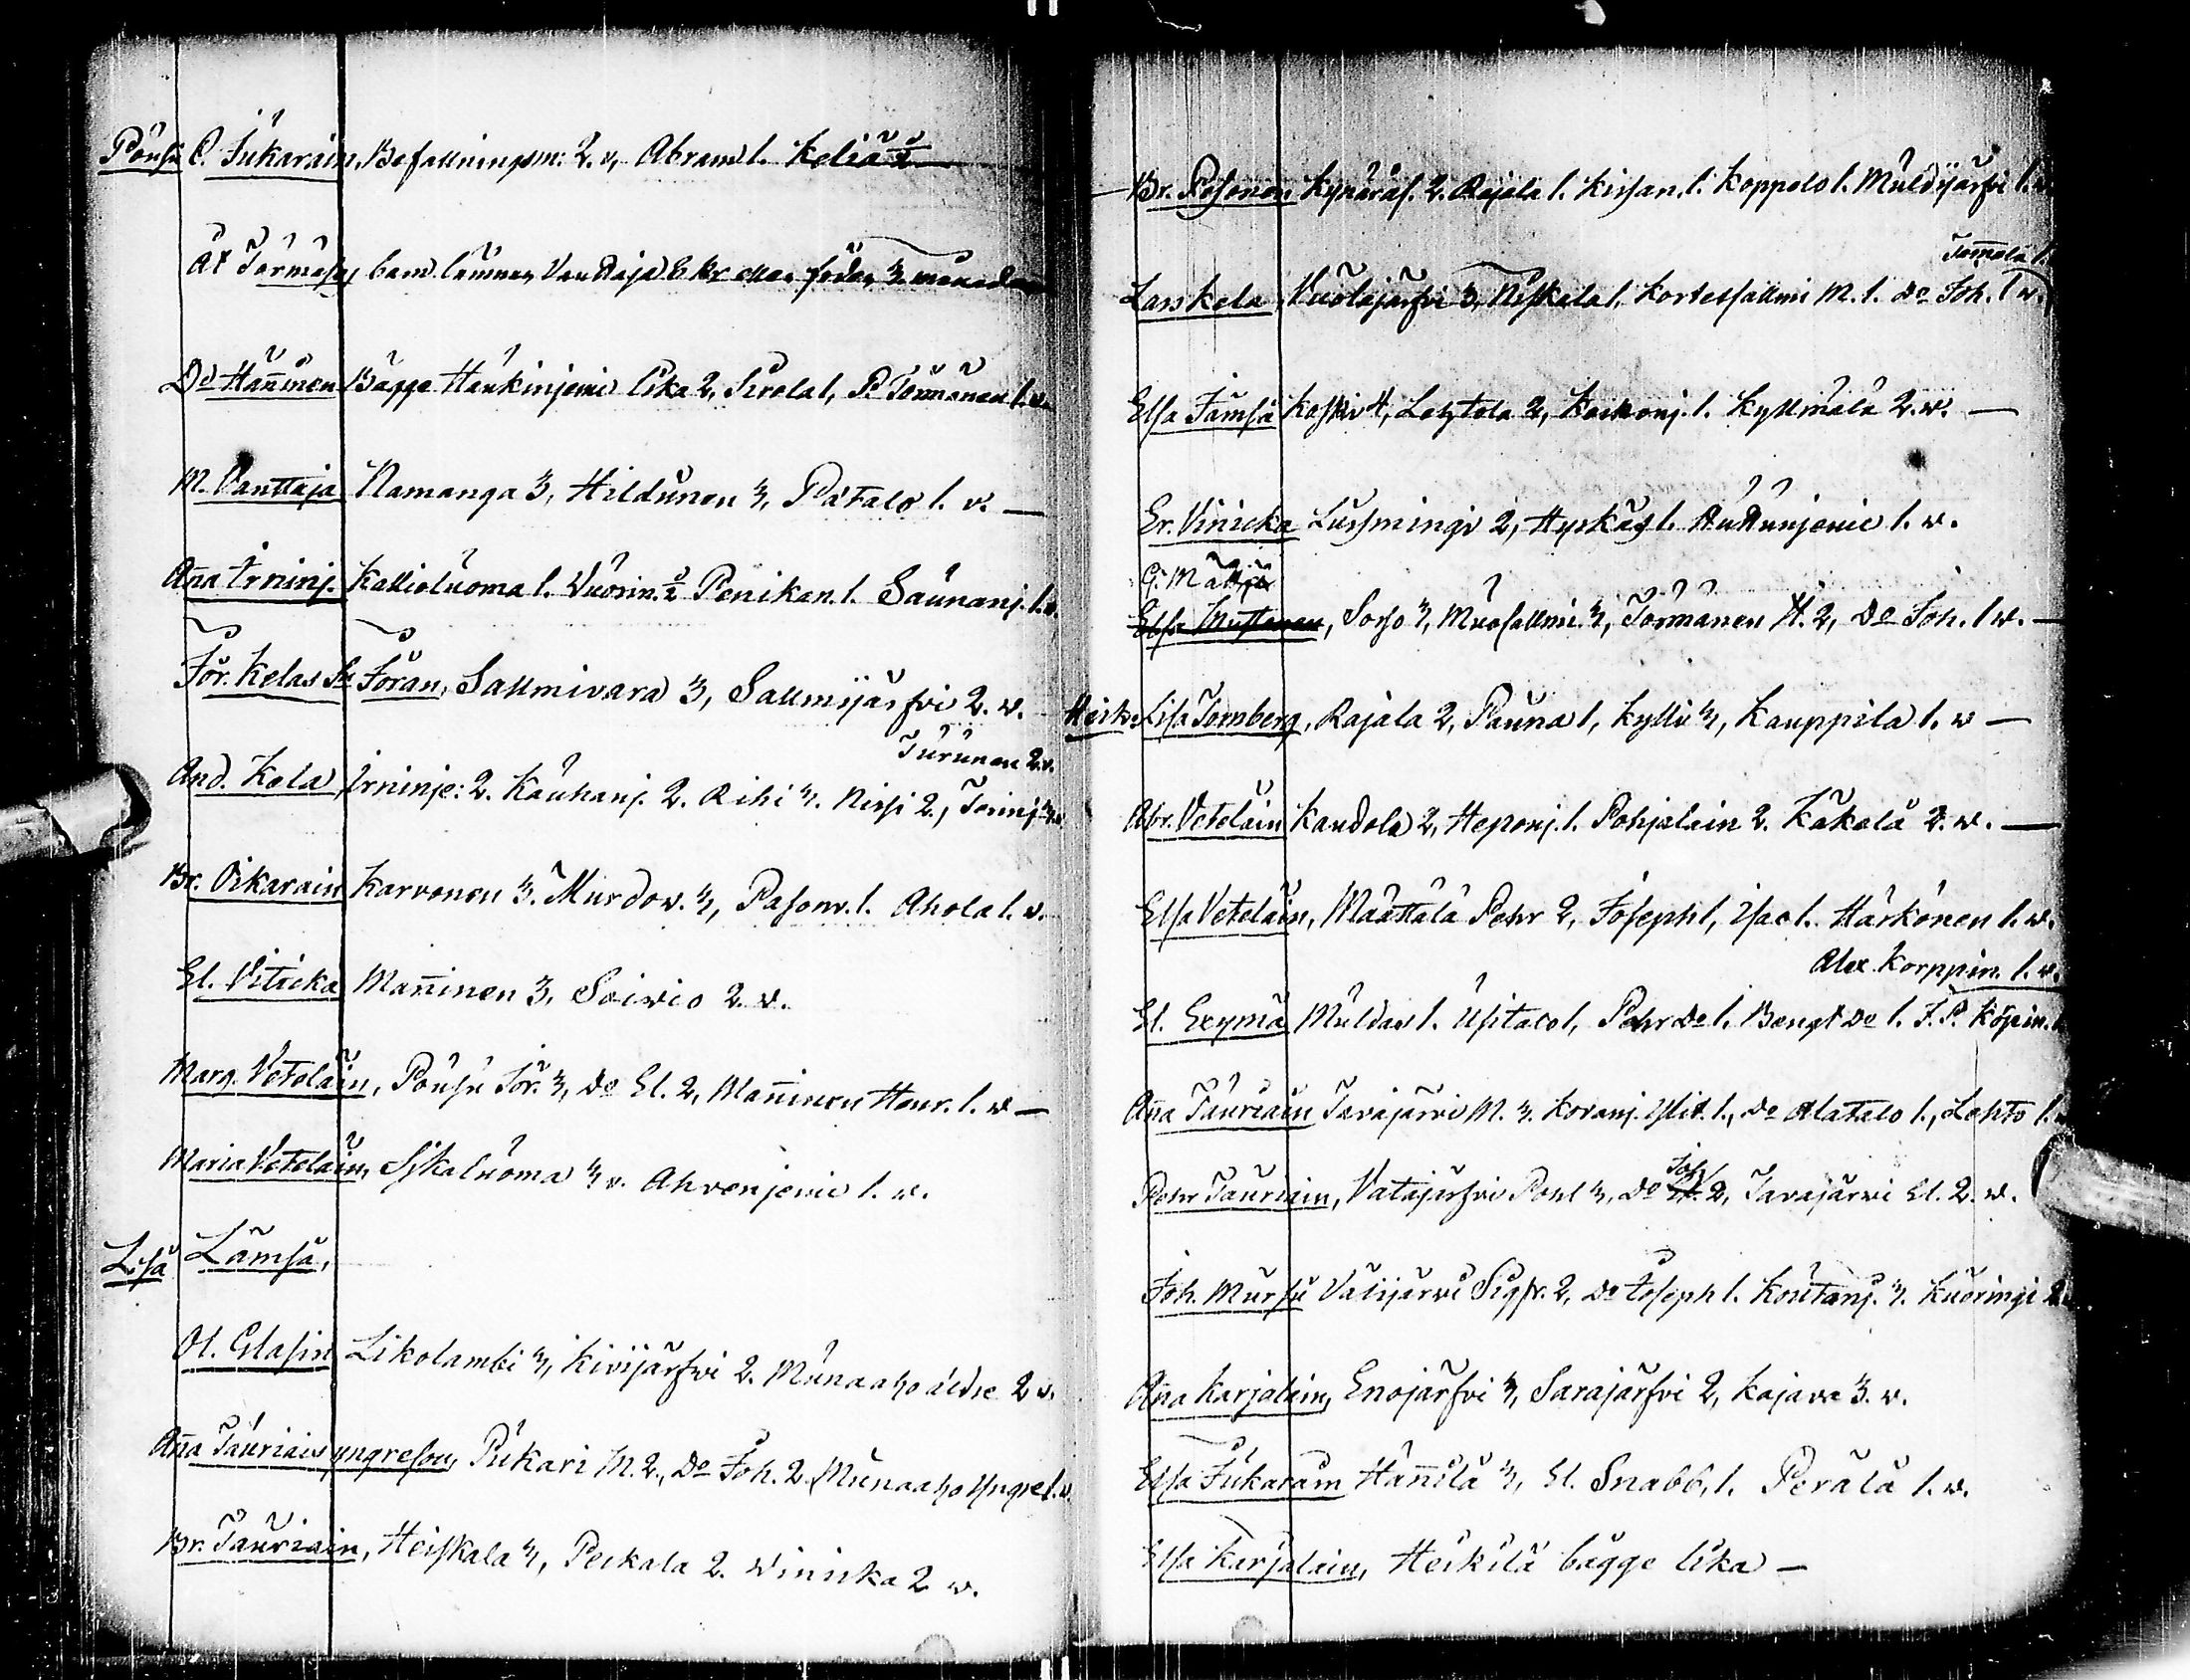 Pousu C. Jukarain, Befallningsm: 2. v, Abram 1. Keliä 2
At Törmäsej barn lämnar Vanttaja 6 kr eller föder 3 månader
Do Hanninen Bägge Haukinjemi lika 2, Sirola 1, P. Törmänen 1. v.
M. Vanttaja Namanga 3, Hildunen 3, Pätalo 1. v. —
Aña Irninj. Kallioluoma 1. Vuorin. 2 Penikan. 1. Saunanj. 1. v.
Jör. Kelas So Jöran, Sallmivara 3, Sallmijärfvi 2. v.
Turunen 2. v.
And. Kela Irninje: 2. Kauhanj. 2. Rihi 3. Nissi 2.,
Br. Oikarain Karvonen 3. Murdov. 3, Pasonv. 1. Ahola 1. v.
El. Viticka Mañinen 3, Soivio 2. v.
Marg. Vetelain, Pousu Jör. 3, Do El. 2, Mañinen Henr. 1. v —
Maria Vetelain, Sykaluoma 3 v. Ahvenjemi 1. v.
Lisa Lämsä,
Ol. Glasin Likolambi 3, Kivijärfvi 2. Munaaho äldre 2 v.
Aña Tauriais yngre son, Pukari M. 2, Do Joh. 2. Munaaho yngre 1. v.
Br. Tauriain, Heiskala 3, Peckala 2. Winicka 2 v.
Br. Posonen Kynäräs. 2. Rajala 1. Kirsan. 1. Koppelo 1. Muldijärfvi 1. v.
Tomola 1.
Lars Kela, Vuotojärfvi 3, Niskala 1, Kortesallmi M. 1. Do Joh. 1 v.
Elsa Jämsä Koski 4, Lehtola 2, 1. Kyllmälä 2. v. —
Er. Vinicka Lussmingi 2, Hyrkäs 1. 1. v.
G. Mattila
Elsa Mustonen, Sorso 3, Muosallmi 3, Törmänen H. 2, Do Joh. 1 v. —
Heik. Lisa Tornberg, Rajala 2, Pauna 1, Kylli 3, Kauppila 1. v —
Abr. Vetelain Kandola 2, Heponj. 1. Pohjalain 2. Käkelä 2. v. —
Elsa Vetelain, Määttälä Pehr 2, Joseph 1, Isac 1. Härkönen 1. v.
Alex. Korppin. 1. v.
El. Exymä Muldas 1. Ūsitalo 1, Pehr Do 1. Bengt Do 1. J. P. Köpin.
Aña Tauriain Tavajärvi M. 3. Koranj. Ylit. 1., Do Alatalo 1., Lehto 1.
Pehr Tauriain, Vatajärfvi Pohl 3, Do Joh 2, Tavajärvi El. 2. v.
Joh. Mursu Välijärvi Sigfr. 2, Do Joseph 1. Koutanj. 3. Kuoringi 2
Aña Karjalain, Enojärfvi 3, Sarajärfvi 2, Kajava 3. v.
Elsa Jukarain Hañilä 3, El. Snabb, 1. Perälä 1. v.
Elsa Karjalain, Heikilä bägge lika —